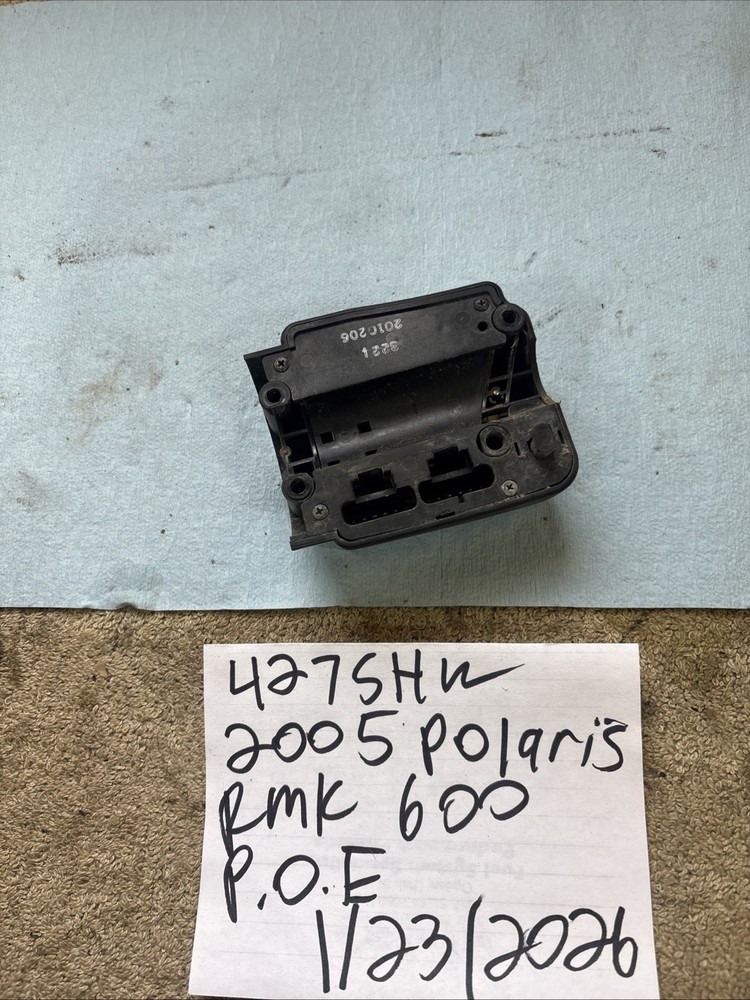 2010206
3224
427SHW
2005 Polaris
RMK 600
P.O.E
1/23/2026